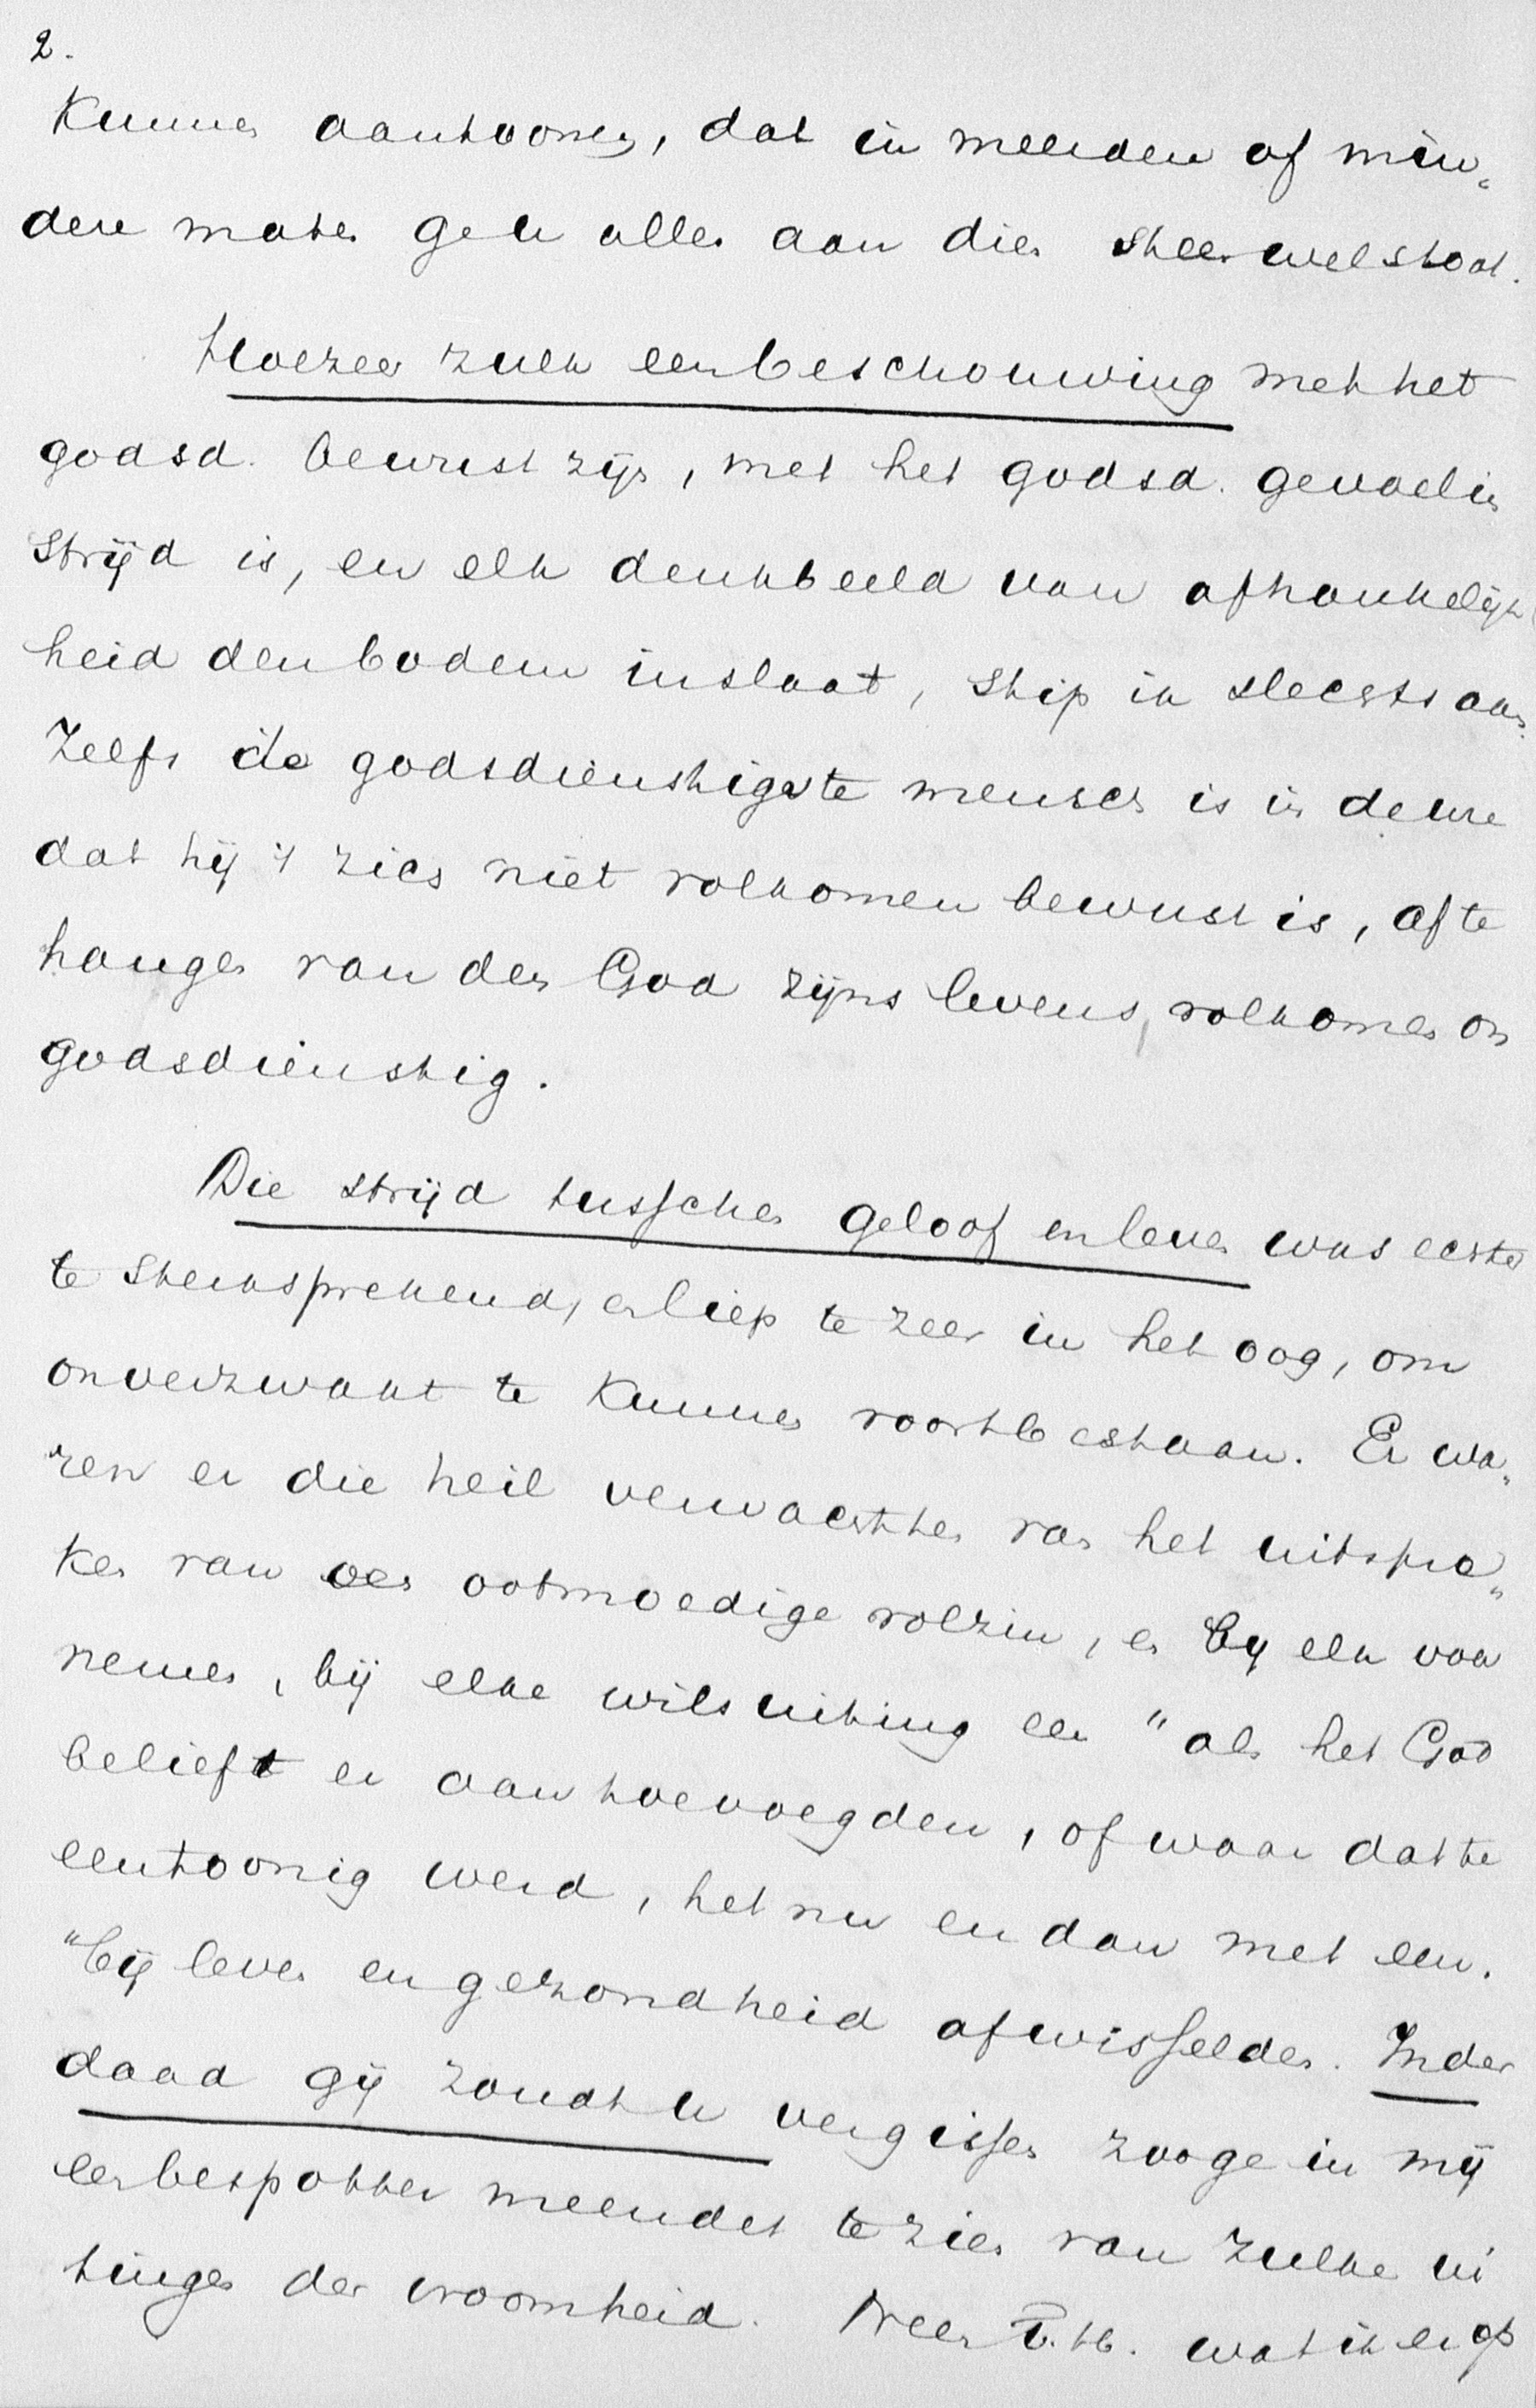 2.
Kunnen aantoonen, dat in meerdere of min„
dere mate gelu alles aan die steen welstoat.
Hoezeer zulk een beschouwing met het
godsd. bewustzijn, met het godsd. gevoel in
strijd is, en elk denkbeeld van afhankelijk
heid den bodem inslaat, stip ik slechts aan.
Zelfs de godsdienstigste mensch is in de ure
dat hij 't zich niet volkomen bewust is, af te
hangen van den God zijns levens, volkomen on
godsdienstig.
Die strijd tusschen geloof en leven was echter
te sterksprekend, er liep te zeer in het oog, om
onverzwakt te kunnen voortbestaan. Er wa„
ren er die heil verwachtten van het uitspre„
ken van een ootmoedige volzin, en bij elk voor
nemen, bij elke wilsuiting een "als het God
belieft er aan toevoegden, of waar dat te
eentoonig werd, het nu en dan met een.
"bij leven en gezondheid afwisselden. Inder
daad gij zoudt u vergissen zoo ge in mij
een bespotter meendet te zien van zulke ui
tingen der vroomheid. Neen v. H. wat ik er op